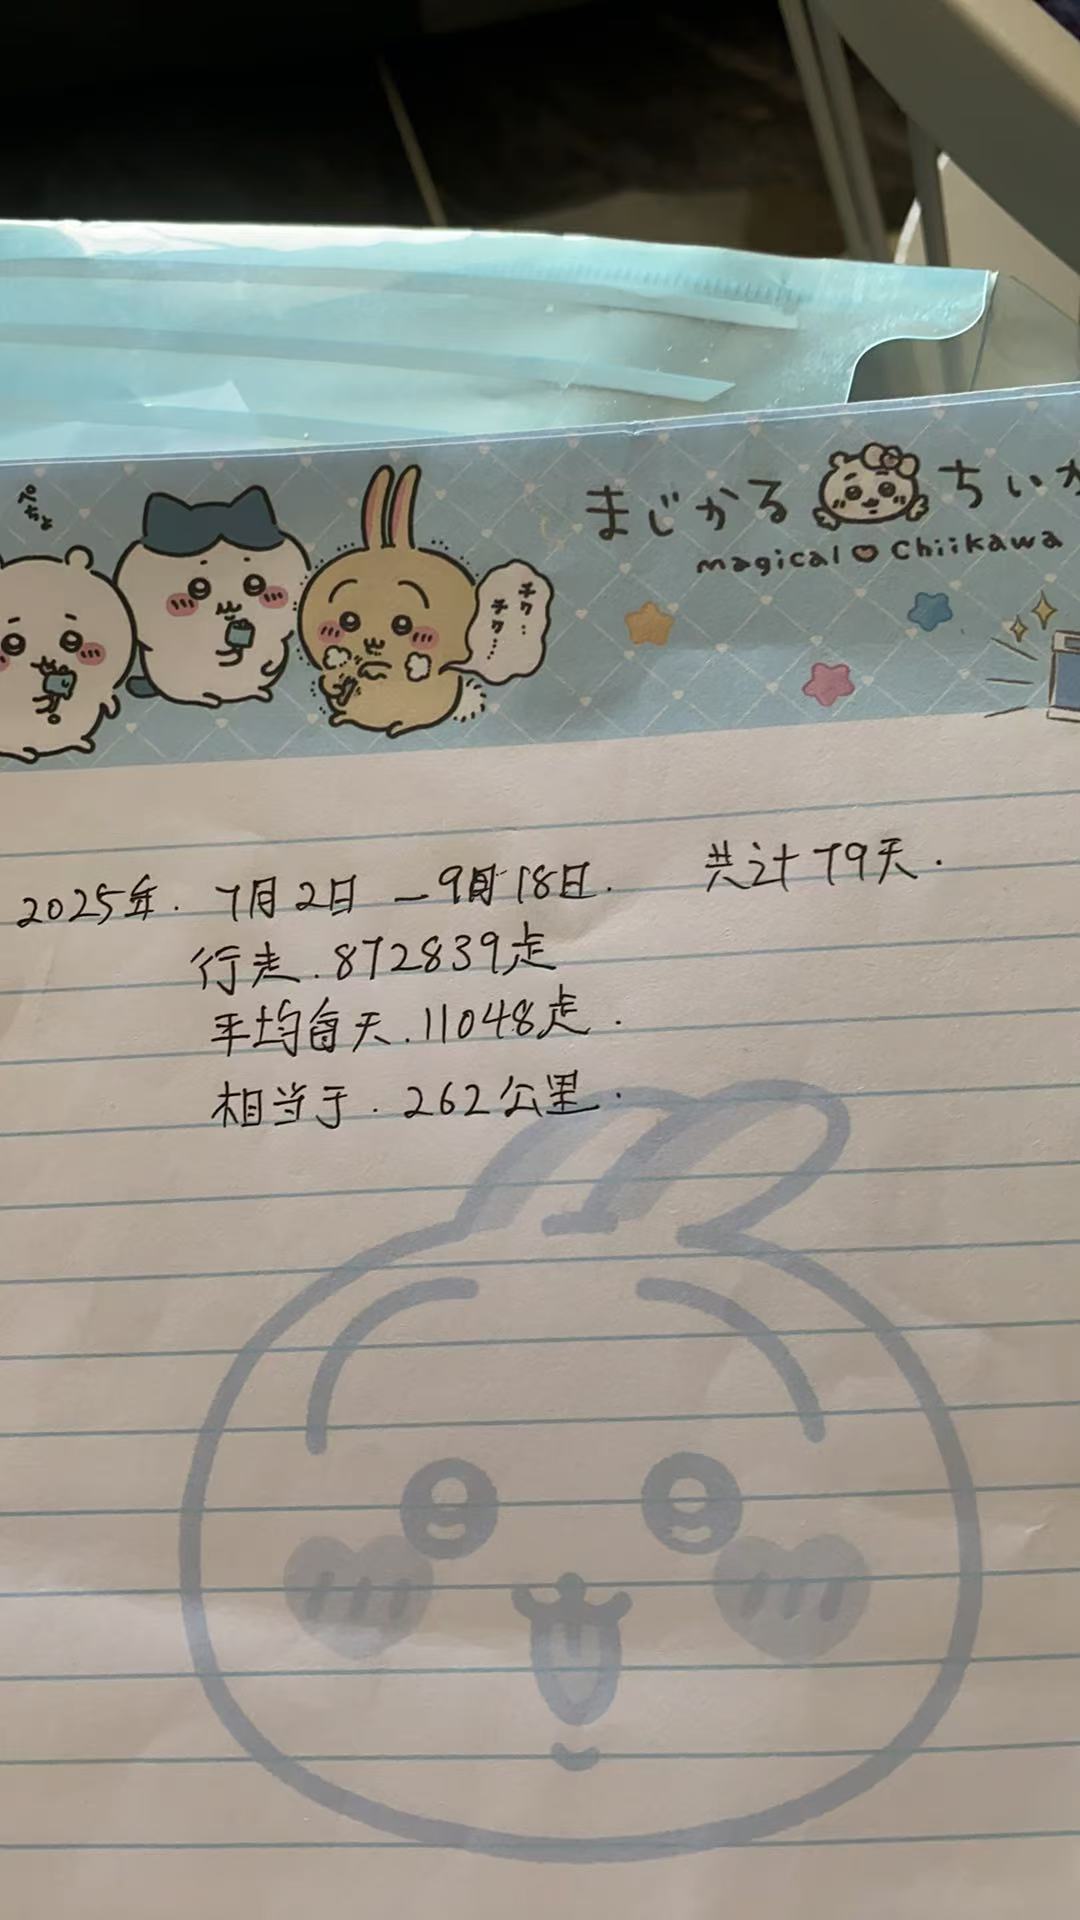 ぺちょ
まじかる ちいか
magical Chiikawa
チク…チク……
2025年. 7月2日 — 9月18日. 共计79天.
行走.872839走
平均每天.11048走.
相当于.262公里.